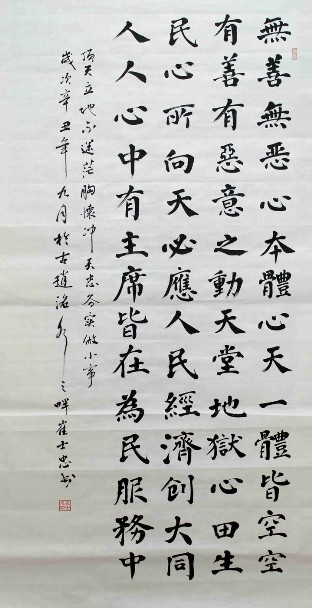 無善無恶心本體心天一體皆空空
有善有惡意之動天堂地獄心田生
民心所向天必應人民經濟創大同
人人心中有主席皆在為民服務中
頂天立地不迷茫胸懷沖天志务实做小事
歲次辛丑年九月於古趙洺水之畔崔士忠书